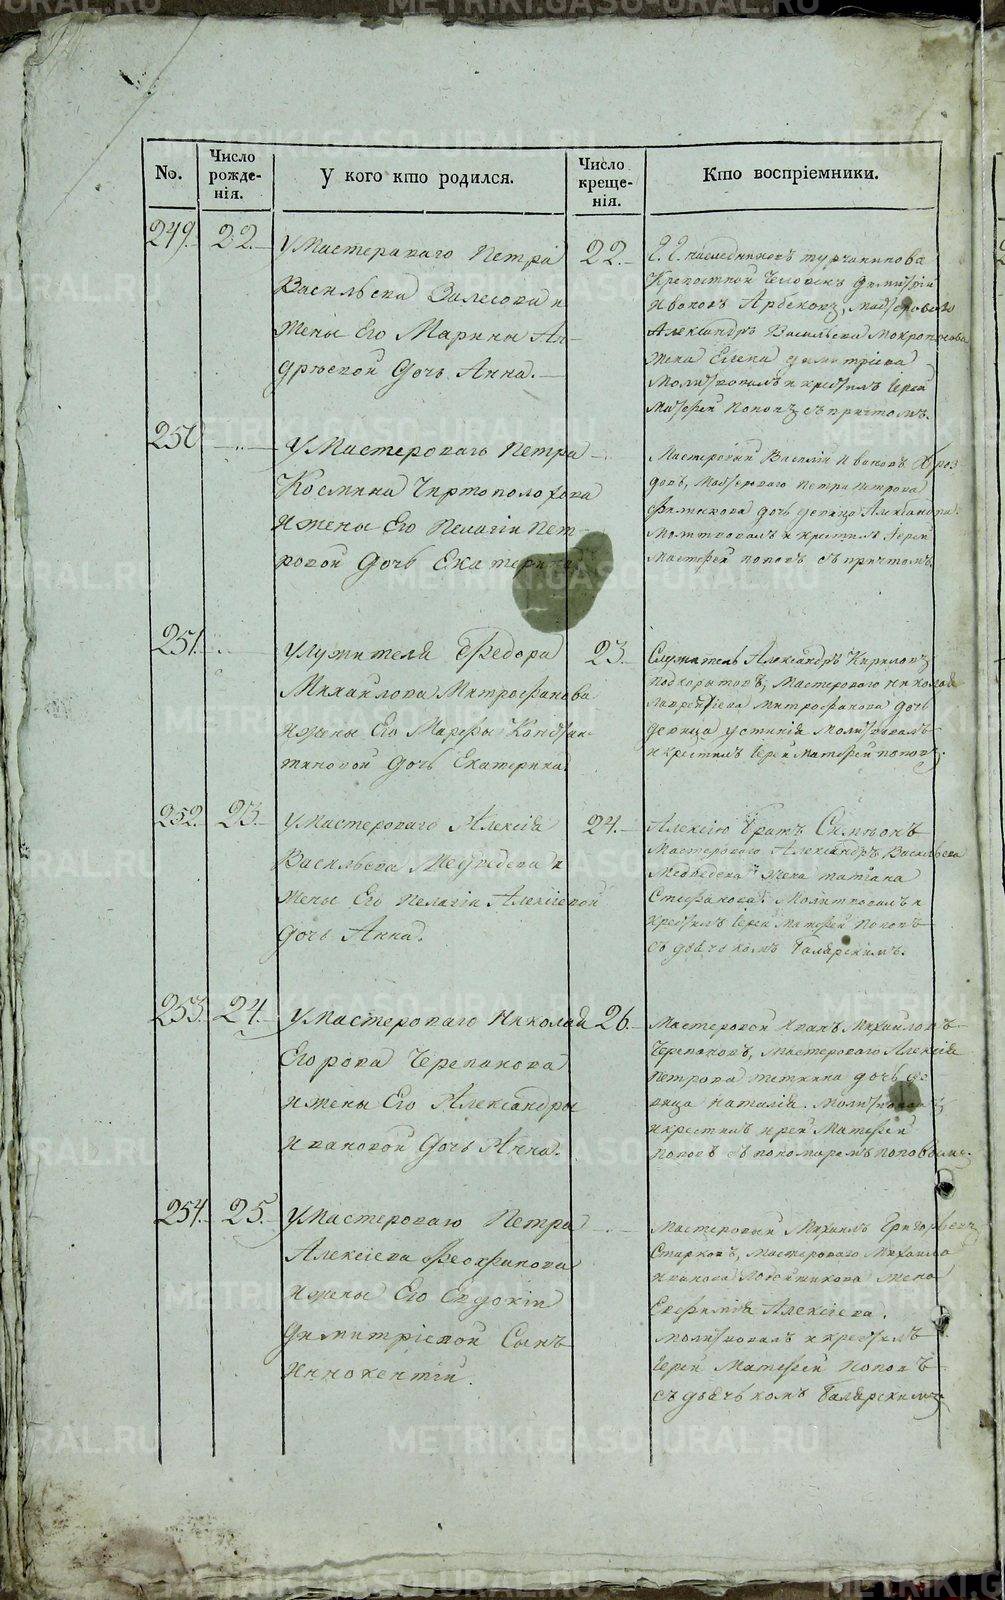 No.
Число рожде-нія.
У кого кто родился.
Число креще-нія.
Кто воспріемники.
249. 22.
У Мастероваго Петра
Васильева Залесова и
жены Его Марины Ан-
дрѣевой Дочь Анна.
22.
Г. Г. наследниковъ Турчанинова
Крепостной Человекъ Димитрій
Ивановъ Арбековъ, Мастероваго
Александръ Васильева Мокроносова
жена Елена Димитріева
Молитвовалъ и крестилъ Іерей
Матфей Поповъ съ причтомъ.
250
У Мастероваго Петра
Космина Чертополохова
И жены Его Пелагіи Пет-
ровой Дочь Екатерина
Мастеровый Василій Ивановъ
Мастероваго Петра Петрова
дочь девица Александра.
Молитвовалъ и крестилъ Іерей
Матфей Поповъ съ причтомъ.
251.
У служителя Федора
Михайлова Митрофанова
И жены Его Марфы Констан-
тиновой Дочь Екатерина.
23.
Служитель Александръ Кириловъ
Подкорытовъ, Мастероваго Николая
Лаврентіева Митрофанова дочь
девица Устинія Молитвовалъ
и крестилъ Іерей Матфей Поповъ.
252. 23.
У Мастероваго Алексія
Васильева Медведева и
жены Его Пелагіи Алексіевой
Дочь Анна.
24.
Алексію братъ Симеонъ
Мастероваго Александръ Васильева
Медведева жена Татіана
Стефанова. Молитвовалъ и
крестилъ Іерей Матфей Поповъ
съ дьячкомъ Галярскимъ.
253. 24.
У Мастероваго Николая
Егорова Черепанова
И жены Его Александры
Ивановой Дочь Анна.
26.
Мастеровой Иванъ Михайловъ
Черепановъ, Мастероваго Алексія
Петрова дочь де-
вица Наталія. Молитвовалъ
и крестилъ Іерей Матфей
Поповъ съ пономаремъ Поповымъ.
254. 25.
У Мастероваго Петра
Алексіева Феофанова
И жены Его Евдокіи
Димитріевой Сынъ
Иннокентій.
Мастеровый Михаилъ Григорьевъ
Старковъ, Мастероваго Михаила
Иванова жена
Евфимія Алексіева.
Молитвовалъ и крестилъ
Іерей Матфей Поповъ
съ дьячькомъ Галярскимъ
METRIKI.GASO-URAL.RU